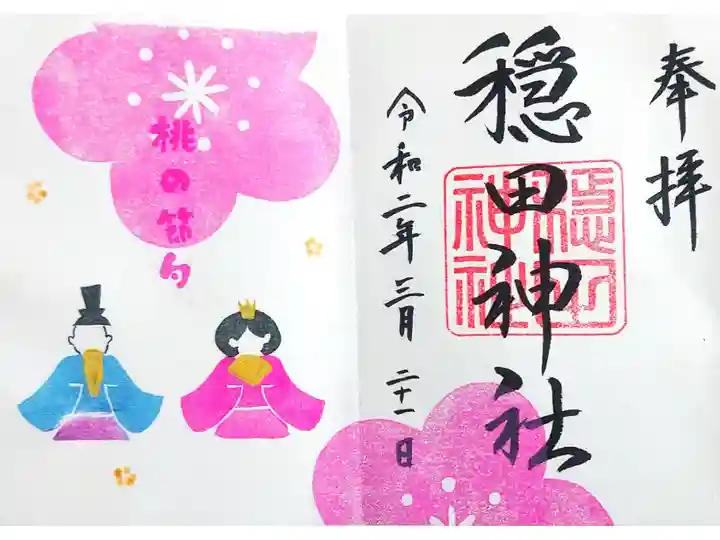 奉拝
穏田神社
令和二年三月二十一日
桃の節句